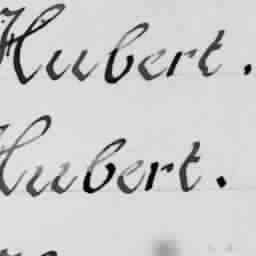 Hubert.
Hubert.